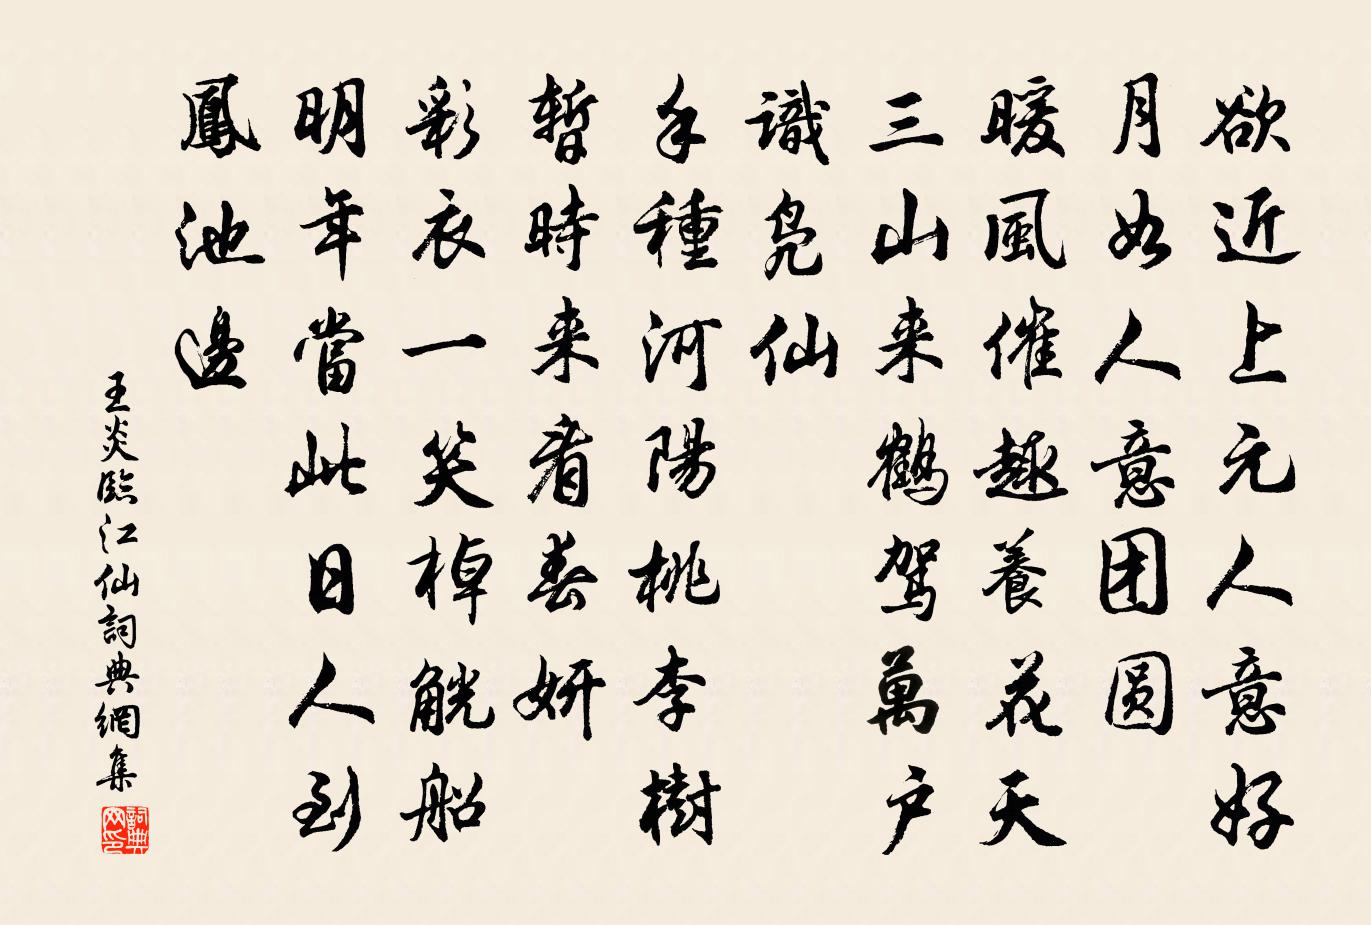 欲近上元人意好
月如人意团圆
暖風催趣養花天
三山来鶴駕萬户
識凫仙
手種河陽桃李樹
暫時来看春妍
彩衣一笑棹觥船
明年當此日人到
鳳池邊
王炎臨江仙詞典網集
詞典網印